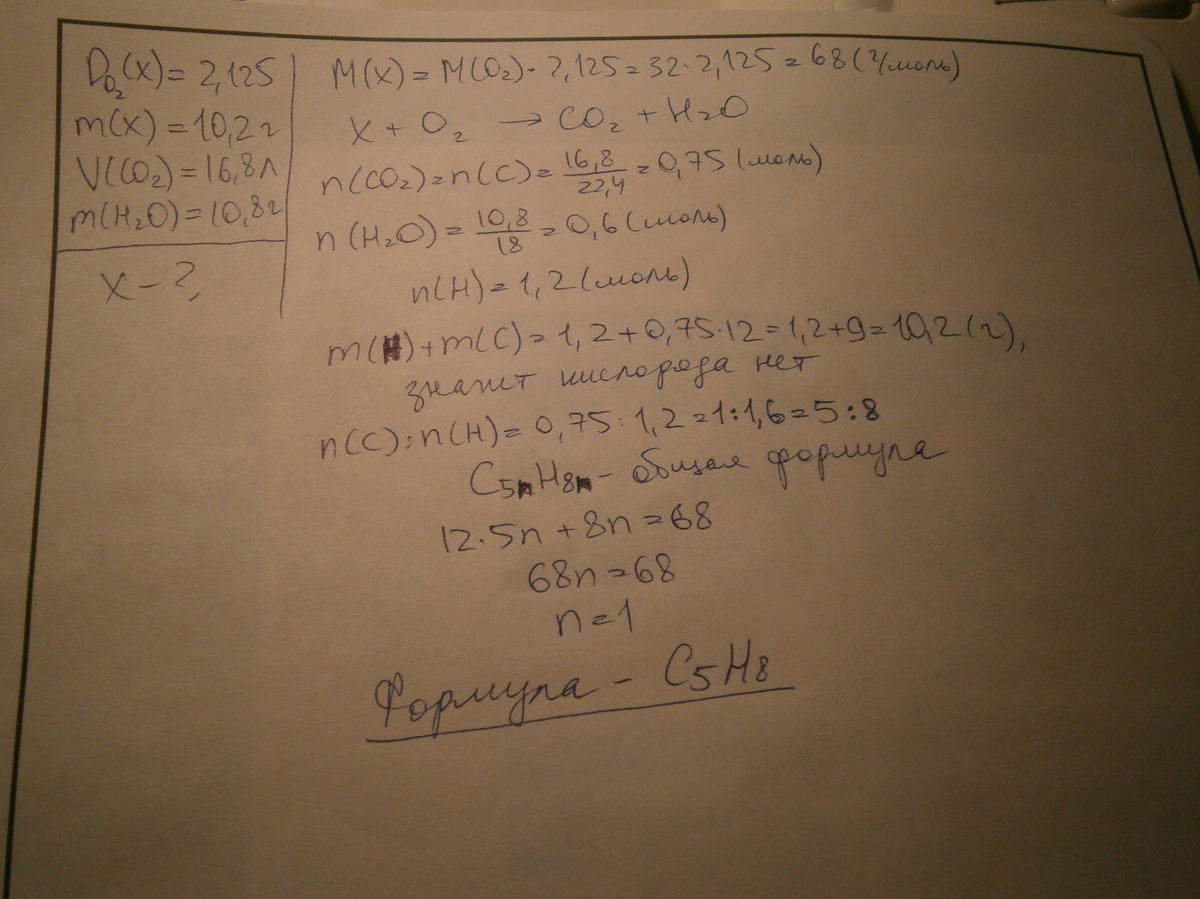 D_O₂(X) = 2,125
m(X) = 10,2 г
V(CO₂) = 16,8 л
m(H₂O) = 10,8 г
X - ?,
M(X) = M(O₂) · 2,125 = 32 · 2,125 = 68 (г/моль)
X + O₂ → CO₂ + H₂O
n(CO₂) = n(C) = 16,8/22,4 = 0,75 (моль)
n(H₂O) = 10,8/18 = 0,6 (моль)
n(H) = 1,2 (моль)
m(H) + m(C) = 1,2 + 0,75·12 = 1,2 + 9 = 10,2 (г),
значит кислорода нет
n(C) : n(H) = 0,75 : 1,2 = 1 : 1,6 = 5 : 8
C₅ₙH₈ₙ - общая формула
12·5n + 8n = 68
68n = 68
n = 1
Формула - C₅H₈